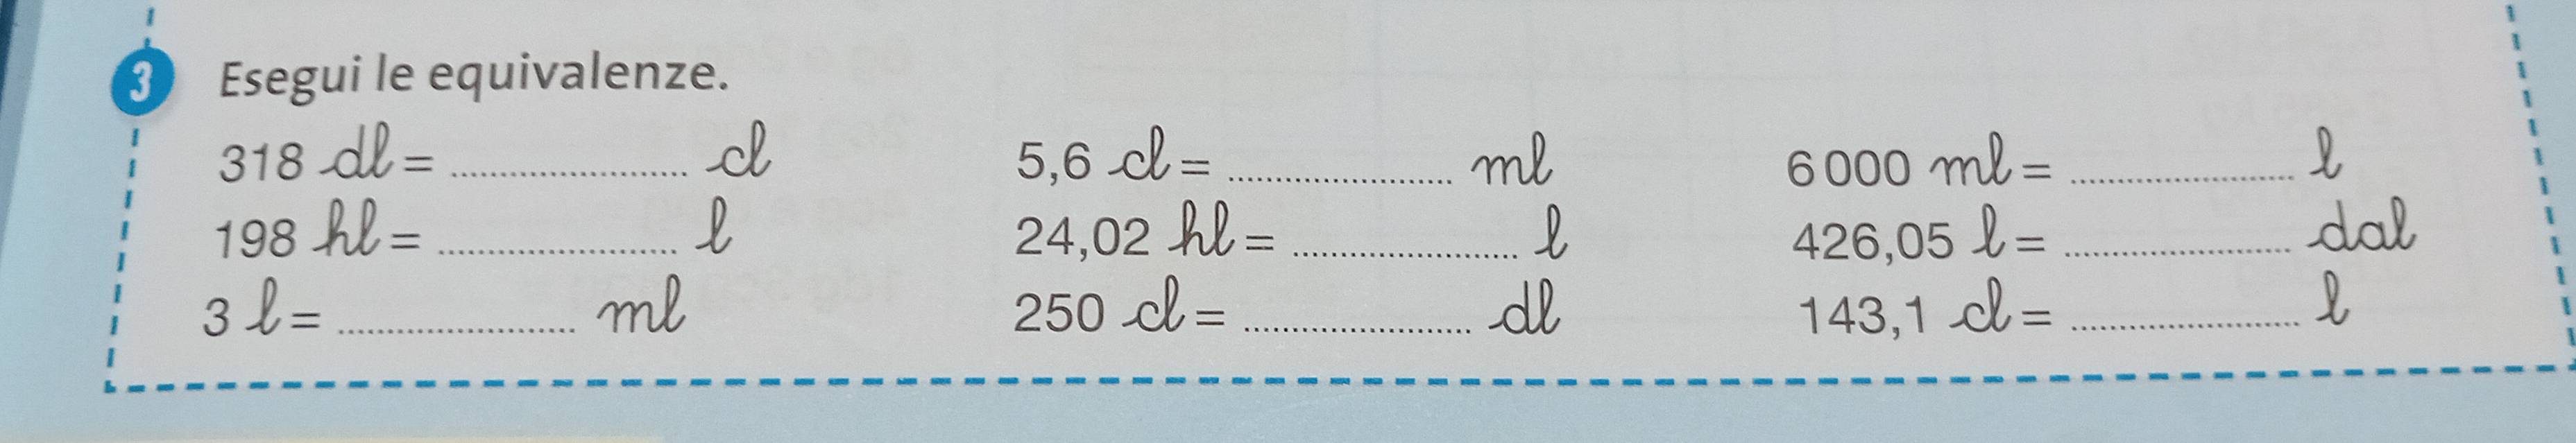 3 Esegui le equivalenze.
318 dl = ........................ cl 5,6 cl = ........................ ml 6 000 ml = ........................ l
198 hl = ........................ l 24,02 hl = ........................ l 426,05 l = ........................ dal
3 l = ........................ ml 250 cl = ........................ dl 143,1 cl = ........................ l